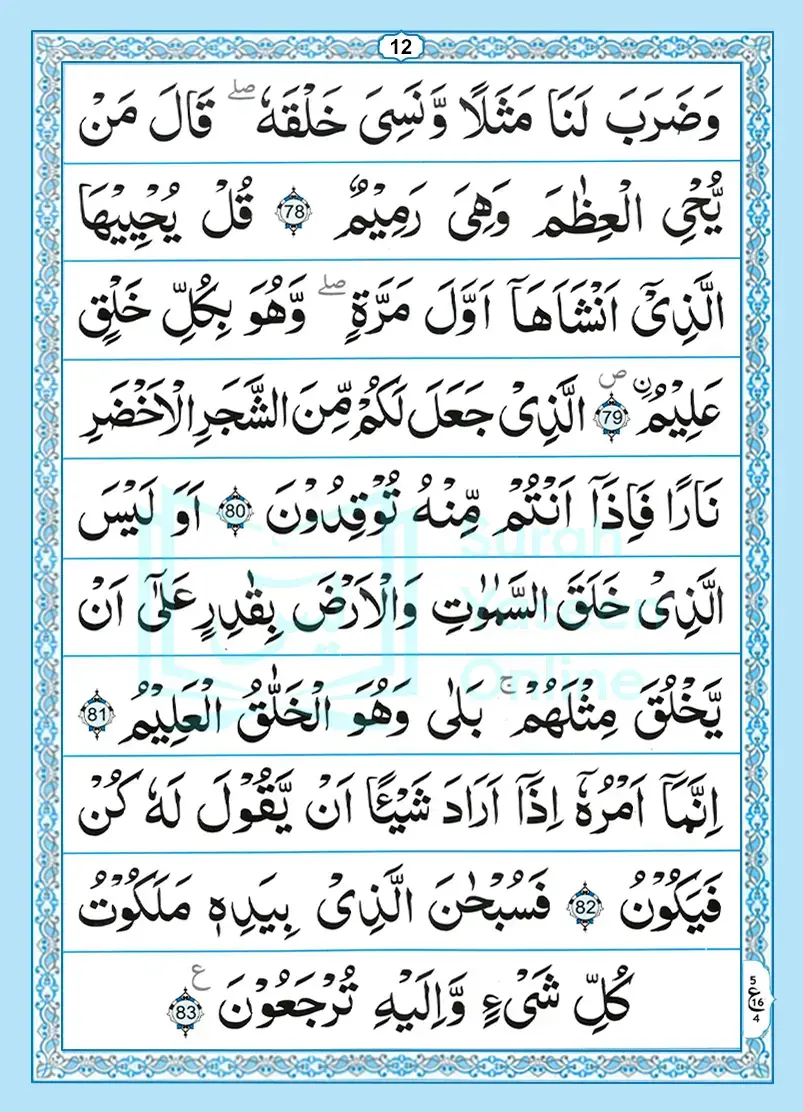 12
وَضَرَبَ لَنَا مَثَلًا وَّنَسِىَ خَلْقَهٗ ؕ قَالَ مَنْ
يُّحْىِ الْعِظَامَ وَهِىَ رَمِيْمٌ 78 قُلْ يُحْيِيْهَا
الَّذِىْٓ اَنْشَاَهَآ اَوَّلَ مَرَّةٍ ۖ وَّهُوَ بِكُلِّ خَلْقٍ
عَلِيْمُ ۨ 79 ۙ الَّذِىْ جَعَلَ لَكُمْ مِّنَ الشَّجَرِ الْاَخْضَرِ
نَارًا فَاِذَآ اَنْتُمْ مِّنْهُ تُوْقِدُوْنَ 80 اَوَ لَيْسَ
الَّذِىْ خَلَقَ السَّمٰوٰتِ وَالْاَرْضَ بِقٰدِرٍ عَلٰٓى اَنْ
يَّخْلُقَ مِثْلَهُمْ ۚ بَلٰى وَهُوَ الْخَلّٰقُ الْعَلِيْمُ 81
اِنَّمَآ اَمْرُهٗٓ اِذَآ اَرَادَ شَيْـًٔا اَنْ يَّقُوْلَ لَهٗ كُنْ
فَيَكُوْنُ 82 فَسُبْحٰنَ الَّذِىْ بِيَدِهٖ مَلَكُوْتُ
كُلِّ شَىْءٍ وَّاِلَيْهِ تُرْجَعُوْنَ ع 83
5
ع
16
4
Surah
Yaseen
Online